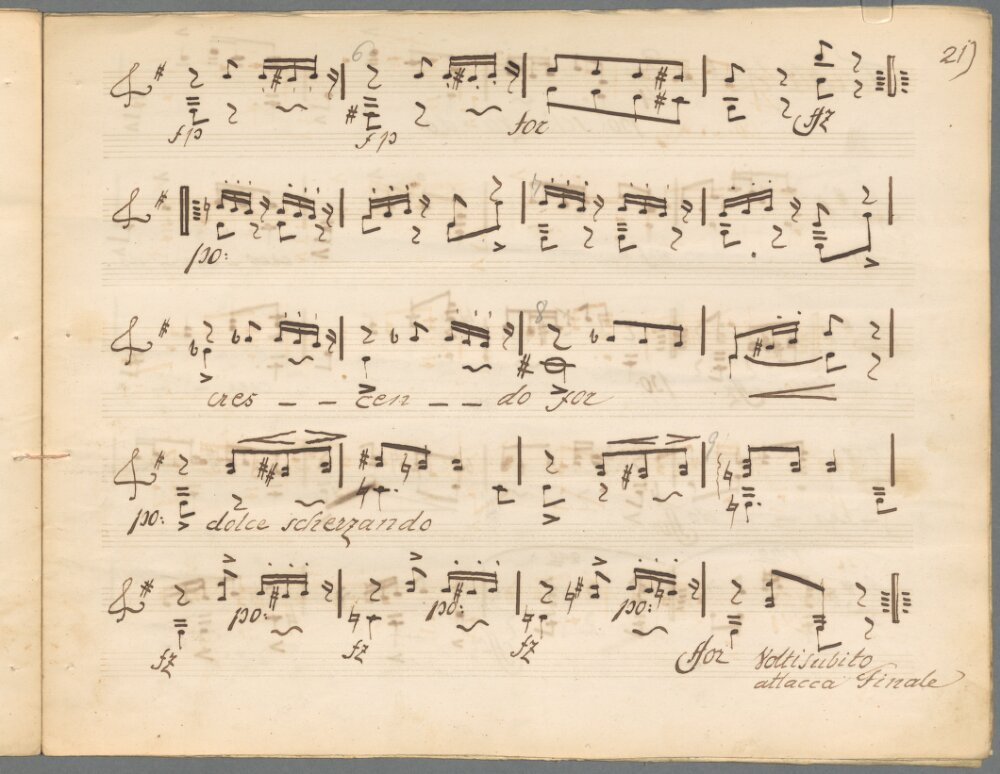 21)
6
fp fp for ffz
7
po:
8
cres _ _ cen _ _ do for
9
po: dolce scherzando
po: po: po:
fz fz fz ffor Volti subito
attacca Finale